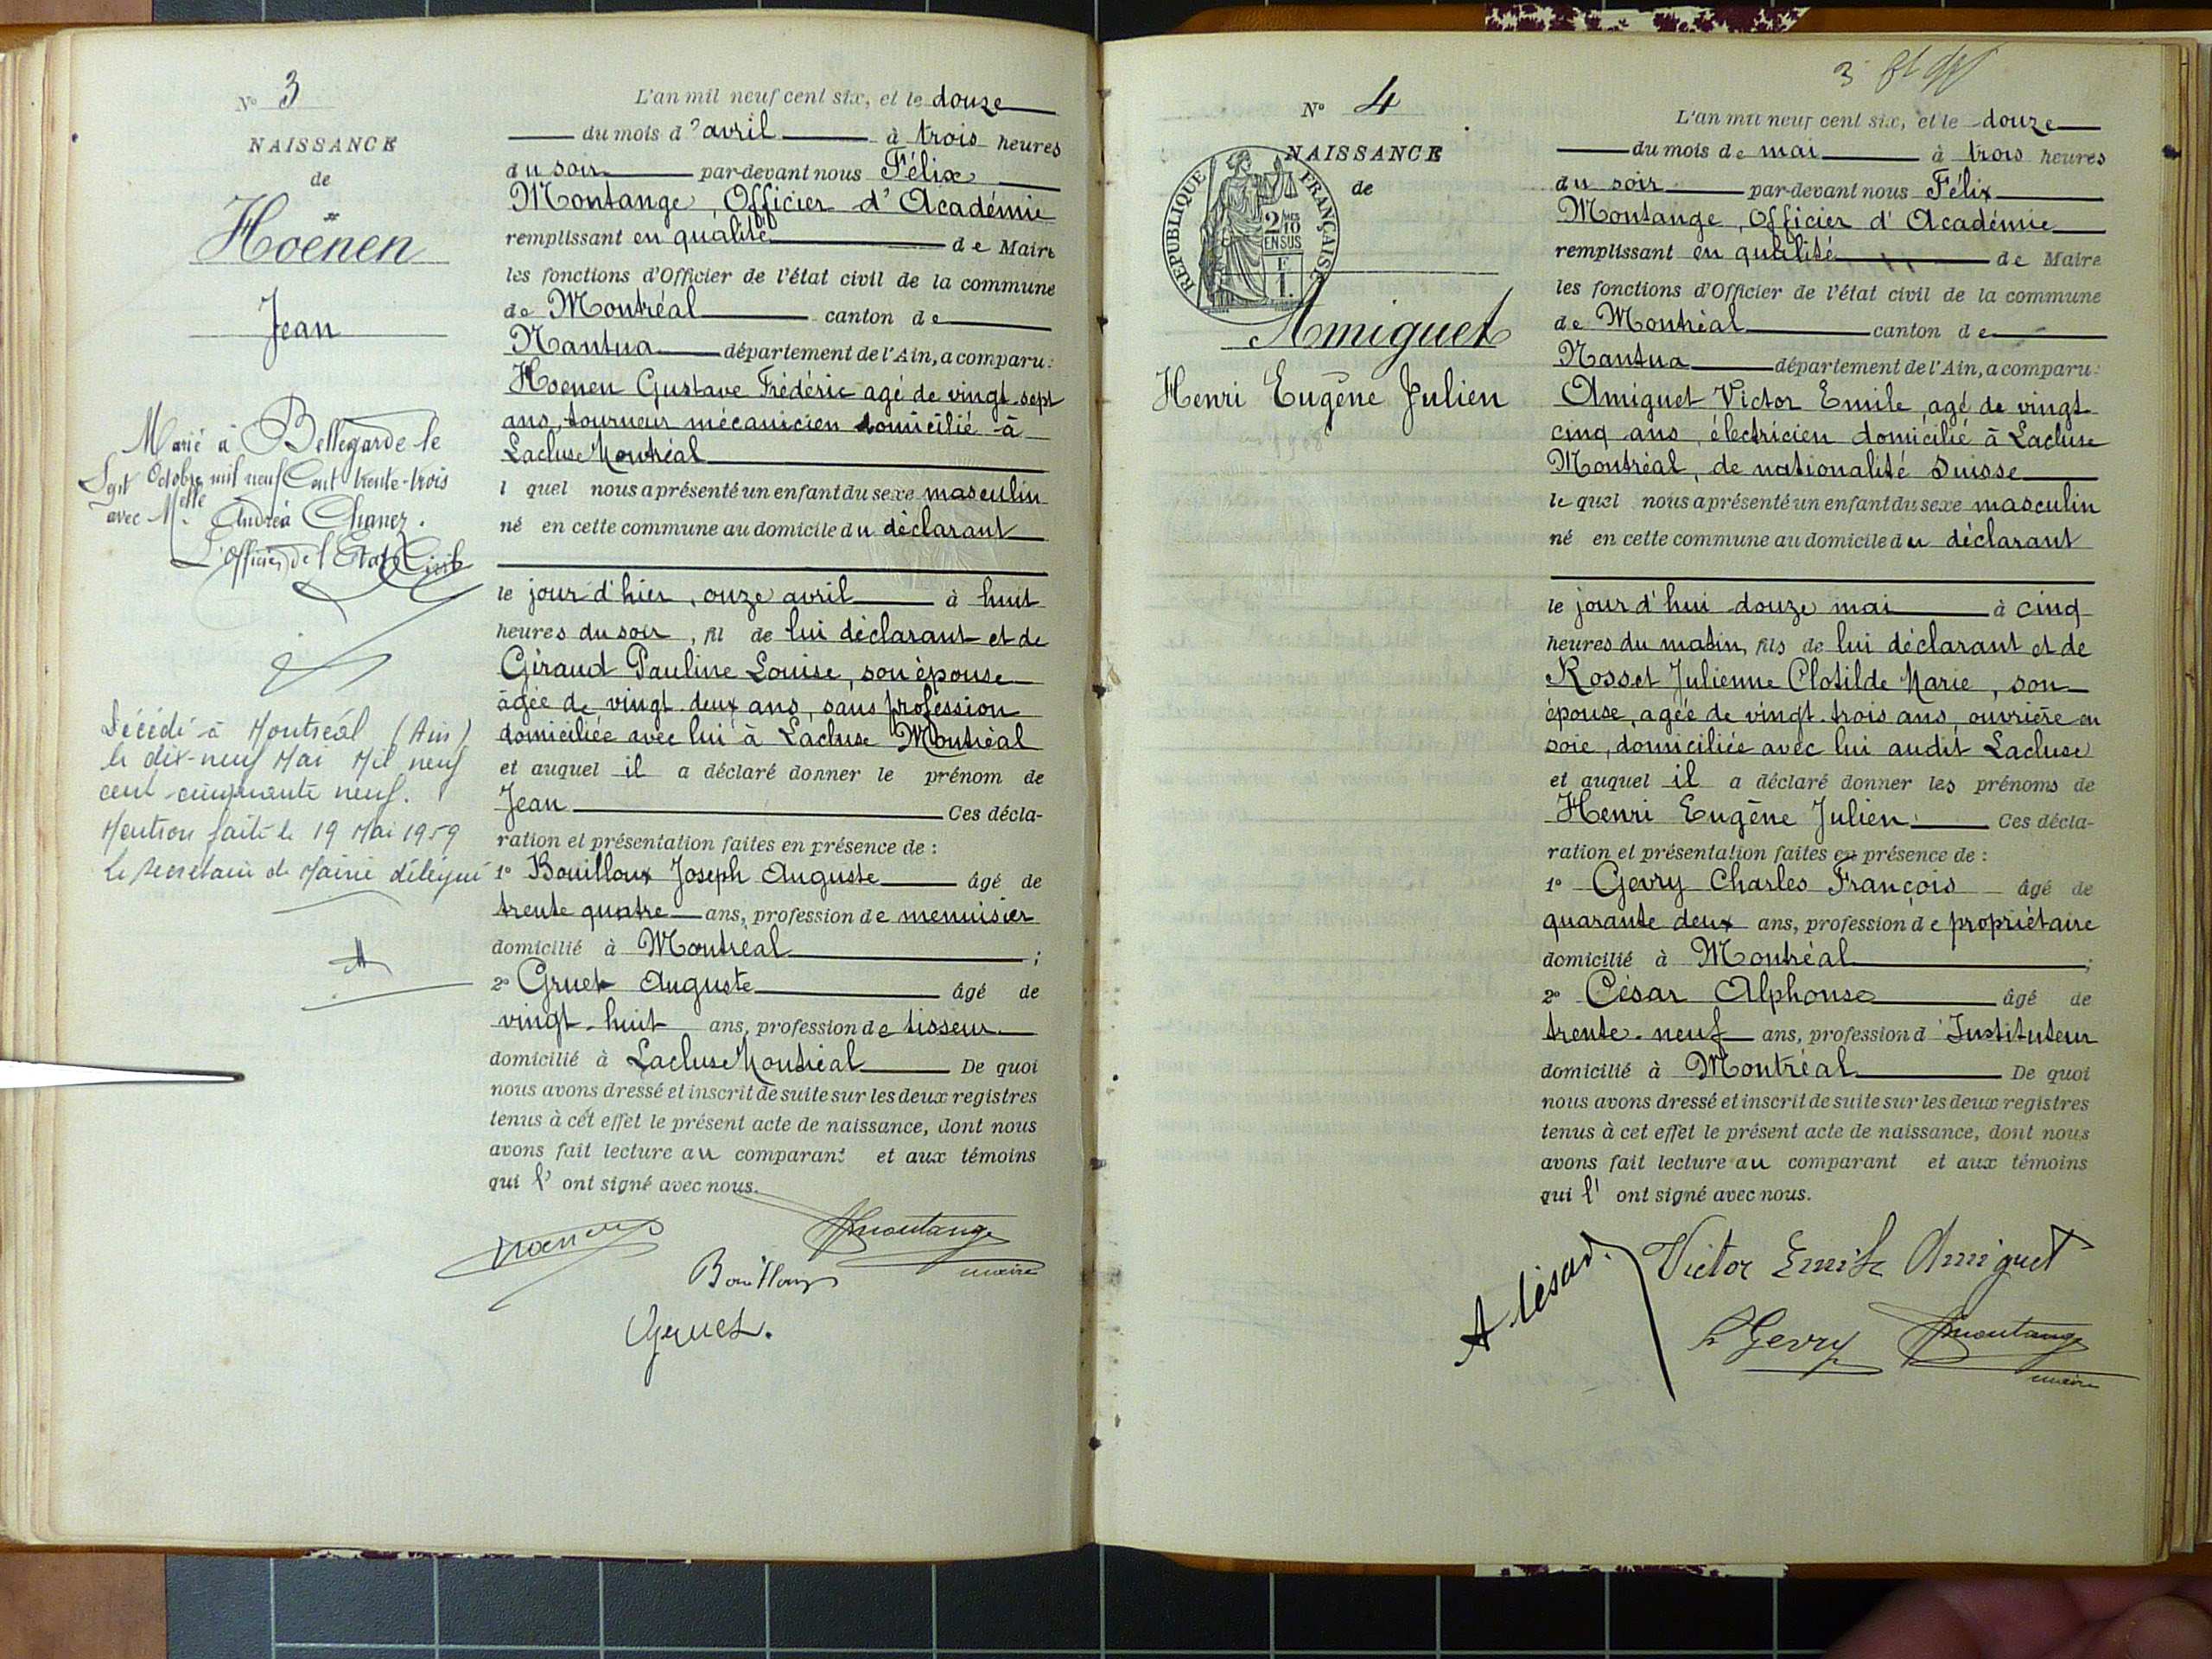 N° 3
NAISSANCE
de
Hoënen
Jean
Marié à Bellegarde le
Sept Octobre mil neuf Cent trente-trois
avec Melle Andréa Chanez.
L'Officier de l'Etat Civil
Décédé à Montréal (Ain)
le dix-neuf Mai Mil neuf
cent cinquante neuf.
Mention faite le 19 Mai 1959
Le secrétaire de Mairie délégué
L'an mil neuf cent six, et le douze
du mois d'avril à trois heures
du soir par-devant nous Félix
Montange, Officier d'Académie
remplissant en qualité de Maire
les fonctions d'Officier de l'état civil de la commune
de Montréal canton de
Nantua département de l'Ain, a comparu:
Hoenen Gustave Frédéric agé de vingt-sept
ans, tourneur mécanicien domicilié à
Lacluse Montréal
l quel nous a présenté un enfant du sexe masculin
né en cette commune au domicile du déclarant
le jour d'hier, onze avril à huit
heures du soir, fil de lui déclarant et de
Géraud Pauline Louise, son épouse
âgée de vingt-deux ans, sans profession
domiciliée avec lui à Lacluse Montréal
et auquel il a déclaré donner le prénom de
Jean Ces décla-
ration et présentation faites en présence de :
1° Bouilloux Joseph Auguste âgé de
trente quatre ans, profession de menuisier
domicilié à Montréal ;
2° Gruet Auguste âgé de
vingt-huit ans, profession de tisseur
domicilié à Lacluse Montréal De quoi
nous avons dressé et inscrit de suite sur les deux registres
tenus à cet effet le présent acte de naissance, dont nous
avons fait lecture au comparant et aux témoins
qui l'ont signé avec nous.
Hoenen
Fmontange
maire
Bouilloux
Gruet.
3
N° 4
NAISSANCE
de
REPUBLIQUE FRANÇAISE
2/10
EN SUS
Amiguet
Henri Eugène Julien
L'an mil neuf cent six, et le douze
du mois de mai à trois heures
du soir par-devant nous Félix
Montange, Officier d'Académie
remplissant en qualité de Maire
les fonctions d'Officier de l'état civil de la commune
de Montréal canton de
Nantua département de l'Ain, a comparu:
Amiguet Victor Emile, agé de vingt-
cinq ans, électricien domicilié à Lacluse
Montréal, de nationalité Suisse
le quel nous a présenté un enfant du sexe masculin
né en cette commune au domicile du déclarant
le jour d'hui douze mai à cinq
heures du matin, fils de lui déclarant et de
Rosset Julienne Clotilde Marie, son
épouse, agée de vingt-trois ans, ouvrière en
soie, domiciliée avec lui audit Lacluse
et auquel il a déclaré donner les prénoms de
Henri Eugène Julien. Ces décla-
ration et présentation faites en présence de :
1° Gevry Charles François âgé de
quarante deux ans, profession de propriétaire
domicilié à Montréal ;
2° César Alphonse âgé de
trente-neuf ans, profession d'Instituteur
domicilié à Montréal De quoi
nous avons dressé et inscrit de suite sur les deux registres
tenus à cet effet le présent acte de naissance, dont nous
avons fait lecture au comparant et aux témoins
qui l'ont signé avec nous.
A César.
Victor Emile Amiguet
Gevry
Fmontange
maire